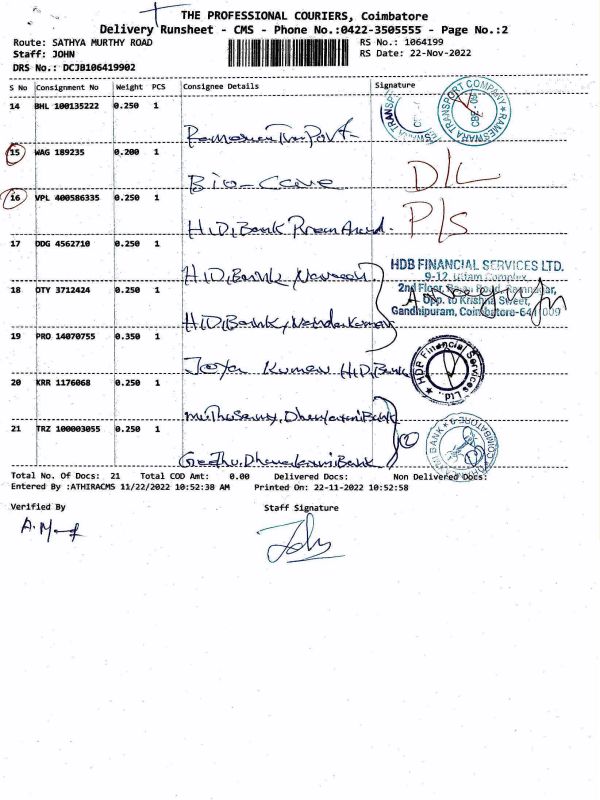 THE PROFESSIONAL COURIERS, Coimbatore
Delivery Runsheet - CMS - Phone No.:0422-3505555 - Page No.:2
Route: SATHYA MURTHY ROAD RS No.: 1064199
Staff: JOHN RS Date: 22-Nov-2022
DRS No.: DCJB106419902
S No Consignment No Weight PCS Consignee Details Signature
14 BHL 100135222 0.250 1
RAMESWARA TRANSPORT COMPANY
15 WAG 189235 0.200 1
Bio-Care D/L
16 VPL 400586335 0.250 1
H.D.Bank P/S
17 DDG 4562710 0.250 1
H.D.Bank Naveen
HDB FINANCIAL SERVICES LTD.
9-12, Uttam Complex,
18 DTY 3712424 0.250 1
2nd Floor, Road, Ramnagar,
Opp. to Krishna Sweet,
Gandhipuram, Coimbatore-641 009
H.D.Bank, Nandakumar
19 PRO 14070755 0.350 1
Jaya Kumar H.D.Bank
HDB Financial Services Ltd.
20 KRR 1176068 0.250 1
Muthusamy, Dhanalaxmi Bank
21 TRZ 100003055 0.250 1
Geethu, Dhanalaxmi Bank
Total No. Of Docs: 21 Total COD Amt: 0.00 Delivered Docs: Non Delivered Docs:
Entered By :ATHIRACMS 11/22/2022 10:52:38 AM Printed On: 22-11-2022 10:52:58
Verified By Staff Signature
John